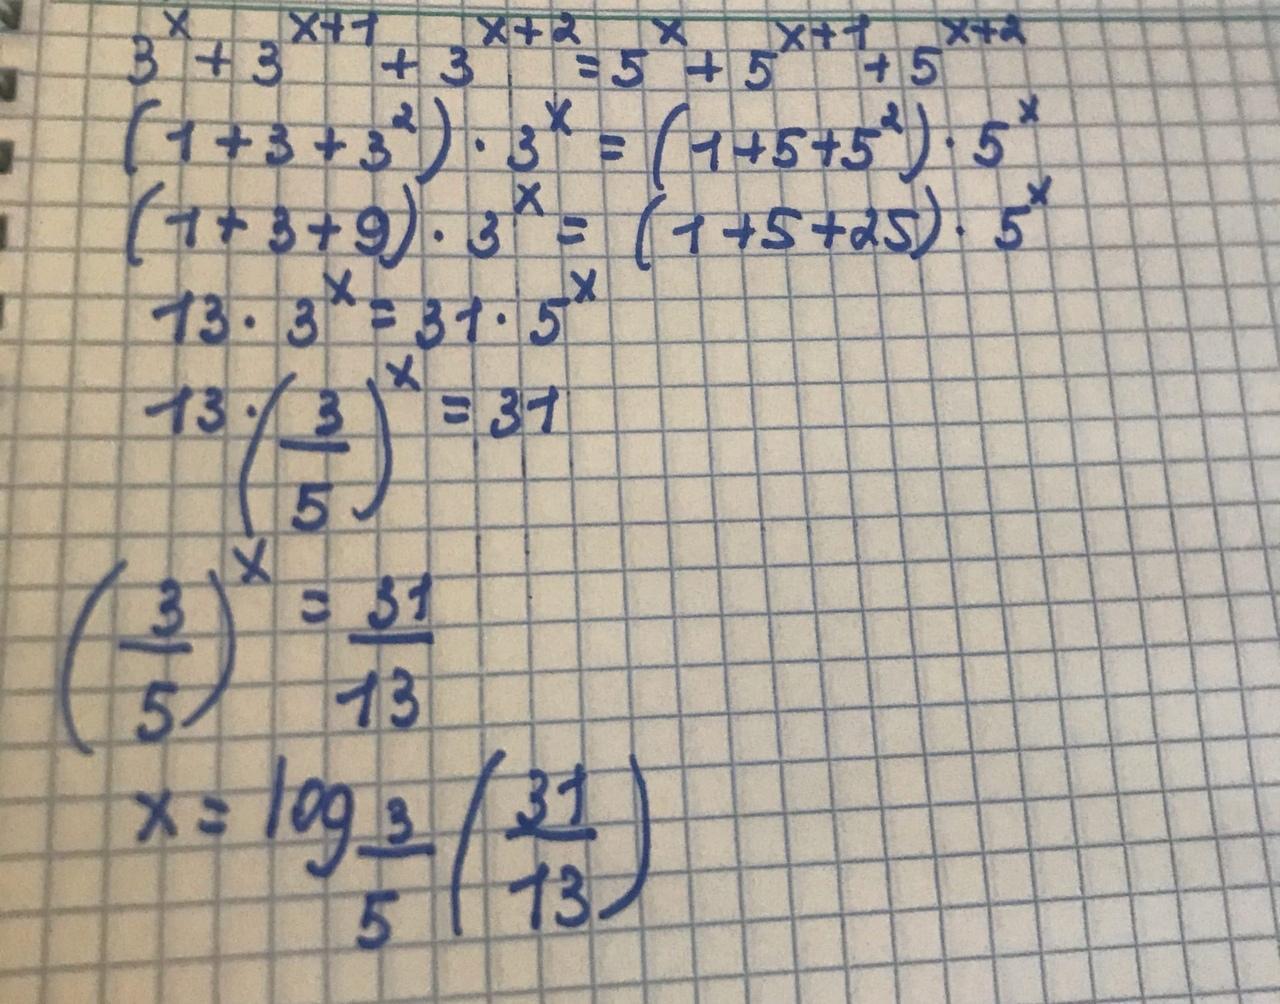 3^x + 3^(x+1) + 3^(x+2) = 5^x + 5^(x+1) + 5^(x+2)
(1 + 3 + 3^2) · 3^x = (1 + 5 + 5^2) · 5^x
(1 + 3 + 9) · 3^x = (1 + 5 + 25) · 5^x
13 · 3^x = 31 · 5^x
13 · (3/5)^x = 31
(3/5)^x = 31/13
x = log_(3/5) (31/13)